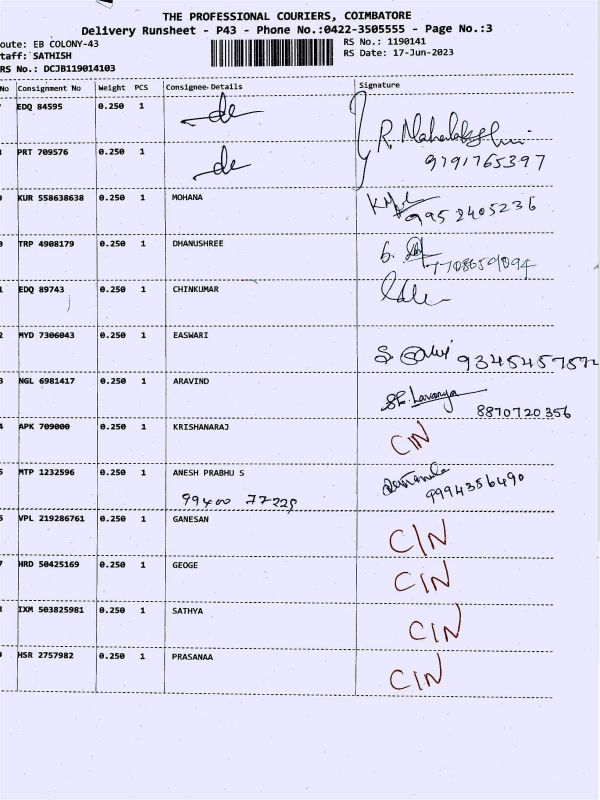 THE PROFESSIONAL COURIERS, COIMBATORE
Delivery Runsheet - P43 - Phone No.:0422-3505555 - Page No.:3
oute: EB COLONY-43 RS No.: 1190141
taff: SATHISH RS Date: 17-Jun-2023
RS No.: DCJB119014103
No Consignment No Weight PCS Consignee Details Signature
EDQ 84595 0.250 1 R. Mahalakshmi
PRT 709576 0.250 1 9791765397
KUR 558638638 0.250 1 MOHANA 9952405236
TRP 4908179 0.250 1 DHANUSHREE 7708659894
EDQ 89743 0.250 1 CHINKUMAR
MYD 7306043 0.250 1 EASWARI
NGL 6981417 0.250 1 ARAVIND Lavanya 8870720356
APK 709000 0.250 1 KRISHANARAJ CIN
MTP 1232596 0.250 1 ANESH PRABHU S 9994356490
99400 77229
VPL 219286761 0.250 1 GANESAN CIN
HRD 50425169 0.250 1 GEOGE CIN
IXM 503825981 0.250 1 SATHYA CIN
HSR 2757982 0.250 1 PRASANAA CIN